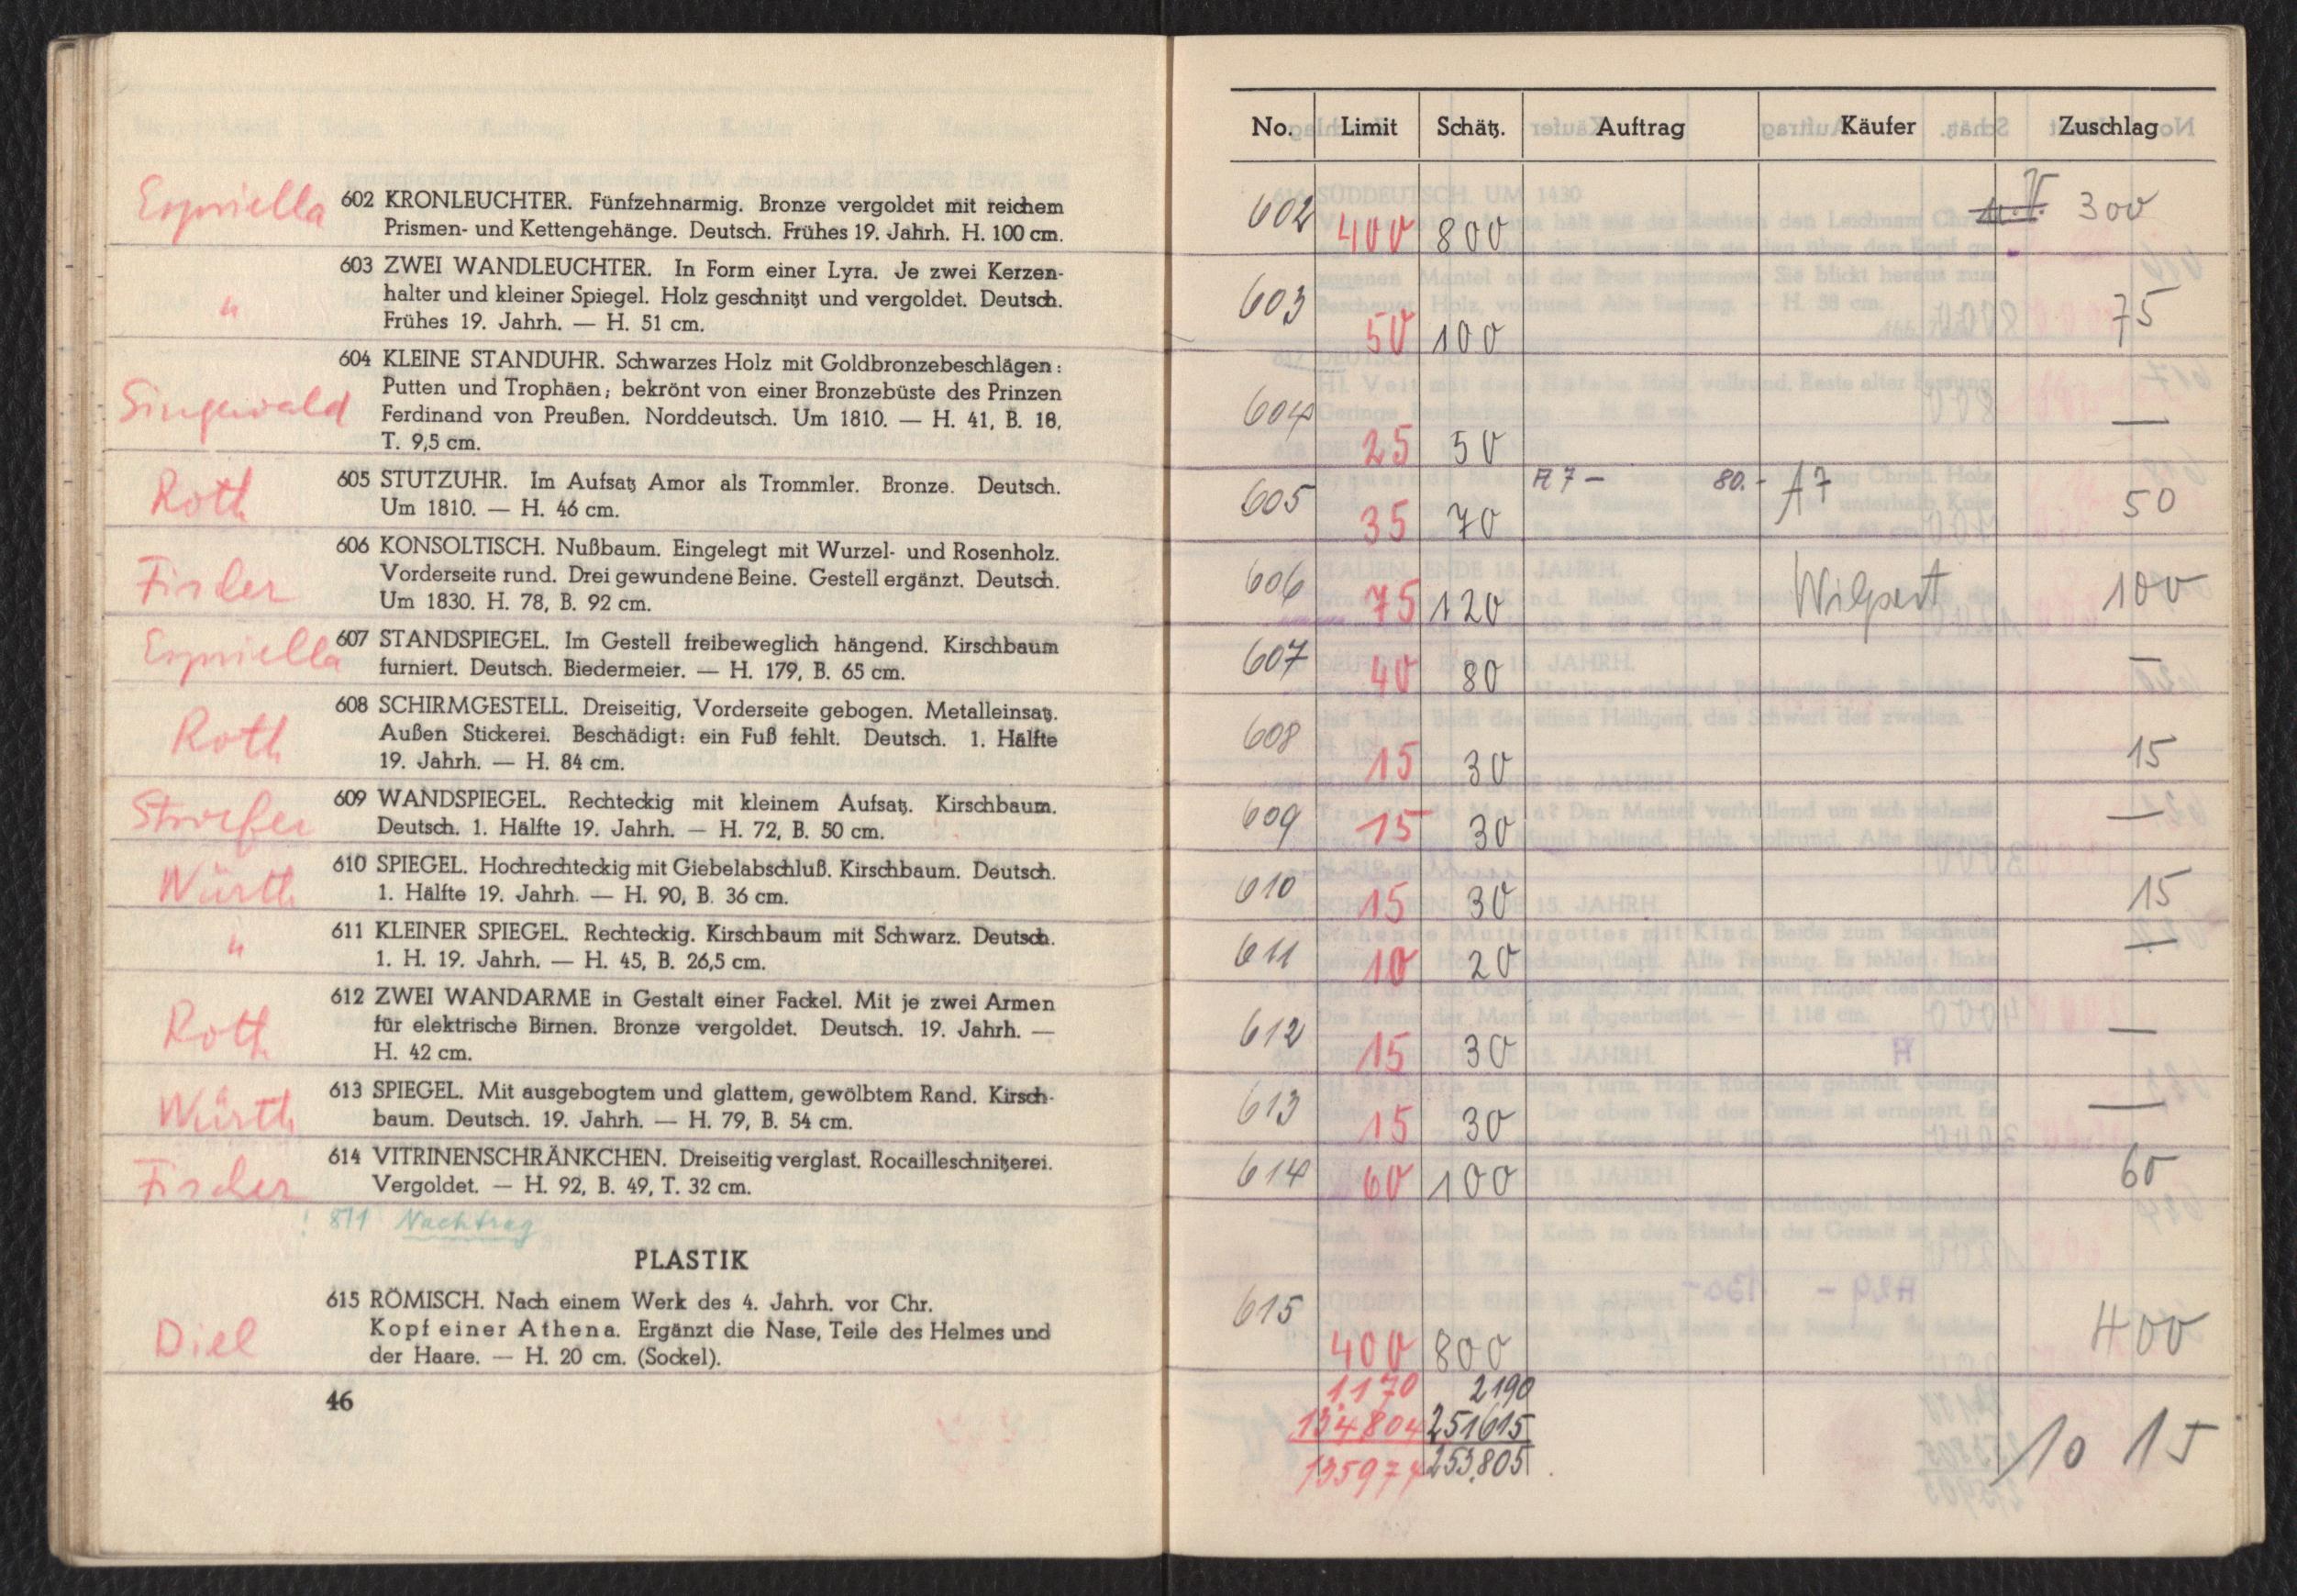 Espriella
602 KRONLEUCHTER. Fünfzehnarmig. Bronze vergoldet mit reichem
Prismen- und Kettengehänge. Deutsch. Frühes 19. Jahrh. H. 100 cm.
"
603 ZWEI WANDLEUCHTER. In Form einer Lyra. Je zwei Kerzen-
halter und kleiner Spiegel. Holz geschnitzt und vergoldet. Deutsch.
Frühes 19. Jahrh. — H. 51 cm.
Singewald
604 KLEINE STANDUHR. Schwarzes Holz mit Goldbronzebeschlägen:
Putten und Trophäen; bekrönt von einer Bronzebüste des Prinzen
Ferdinand von Preußen. Norddeutsch. Um 1810. — H. 41, B. 18,
T. 9,5 cm.
Roth
605 STUTZUHR. Im Aufsatz Amor als Trommler. Bronze. Deutsch.
Um 1810. — H. 46 cm.
Fischer
606 KONSOLTISCH. Nußbaum. Eingelegt mit Wurzel- und Rosenholz.
Vorderseite rund. Drei gewundene Beine. Gestell ergänzt. Deutsch.
Um 1830. H. 78, B. 92 cm.
Espriella
607 STANDSPIEGEL. Im Gestell freibeweglich hängend. Kirschbaum
furniert. Deutsch. Biedermeier. — H. 179, B. 65 cm.
Roth
608 SCHIRMGESTELL. Dreiseitig, Vorderseite gebogen. Metalleinsatz.
Außen Stickerei. Beschädigt: ein Fuß fehlt. Deutsch. 1. Hälfte
19. Jahrh. — H. 84 cm.
609 WANDSPIEGEL. Rechteckig mit kleinem Aufsatz. Kirschbaum.
Deutsch. 1. Hälfte 19. Jahrh. — H. 72, B. 50 cm.
Würth
610 SPIEGEL. Hochrechteckig mit Giebelabschluß. Kirschbaum. Deutsch.
1. Hälfte 19. Jahrh. — H. 90, B. 36 cm.
"
611 KLEINER SPIEGEL. Rechteckig. Kirschbaum mit Schwarz. Deutsch.
1. H. 19. Jahrh. — H. 45, B. 26,5 cm.
Roth
612 ZWEI WANDARME in Gestalt einer Fackel. Mit je zwei Armen
für elektrische Birnen. Bronze vergoldet. Deutsch. 19. Jahrh. —
H. 42 cm.
Würth
613 SPIEGEL. Mit ausgebogtem und glattem, gewölbtem Rand. Kirsch-
baum. Deutsch. 19. Jahrh. — H. 79, B. 54 cm.
Fischer
614 VITRINENSCHRÄNKCHEN. Dreiseitig verglast. Rocailleschnitzerei.
Vergoldet. — H. 92, B. 49, T. 32 cm.
! 811 Nachtrag
PLASTIK
Diel
615 RÖMISCH. Nach einem Werk des 4. Jahrh. vor Chr.
Kopf einer Athena. Ergänzt die Nase, Teile des Helmes und
der Haare. — H. 20 cm. (Sockel).
46
No. Limit Schätz. Auftrag Käufer Zuschlag
602 400 800 300
603 50 100 75
604 25 50 —
605 35 70 A7 – 80.- A7 50
606 75 120 Wilpert 100
607 40 80 —
608 15 30 15
609 15 30 —
610 15 30 15
611 10 20 —
612 15 30 —
613 15 30 —
614 60 100 60
615 400 800 400
1170 2190
134804 251615
135974 253.805
10 15